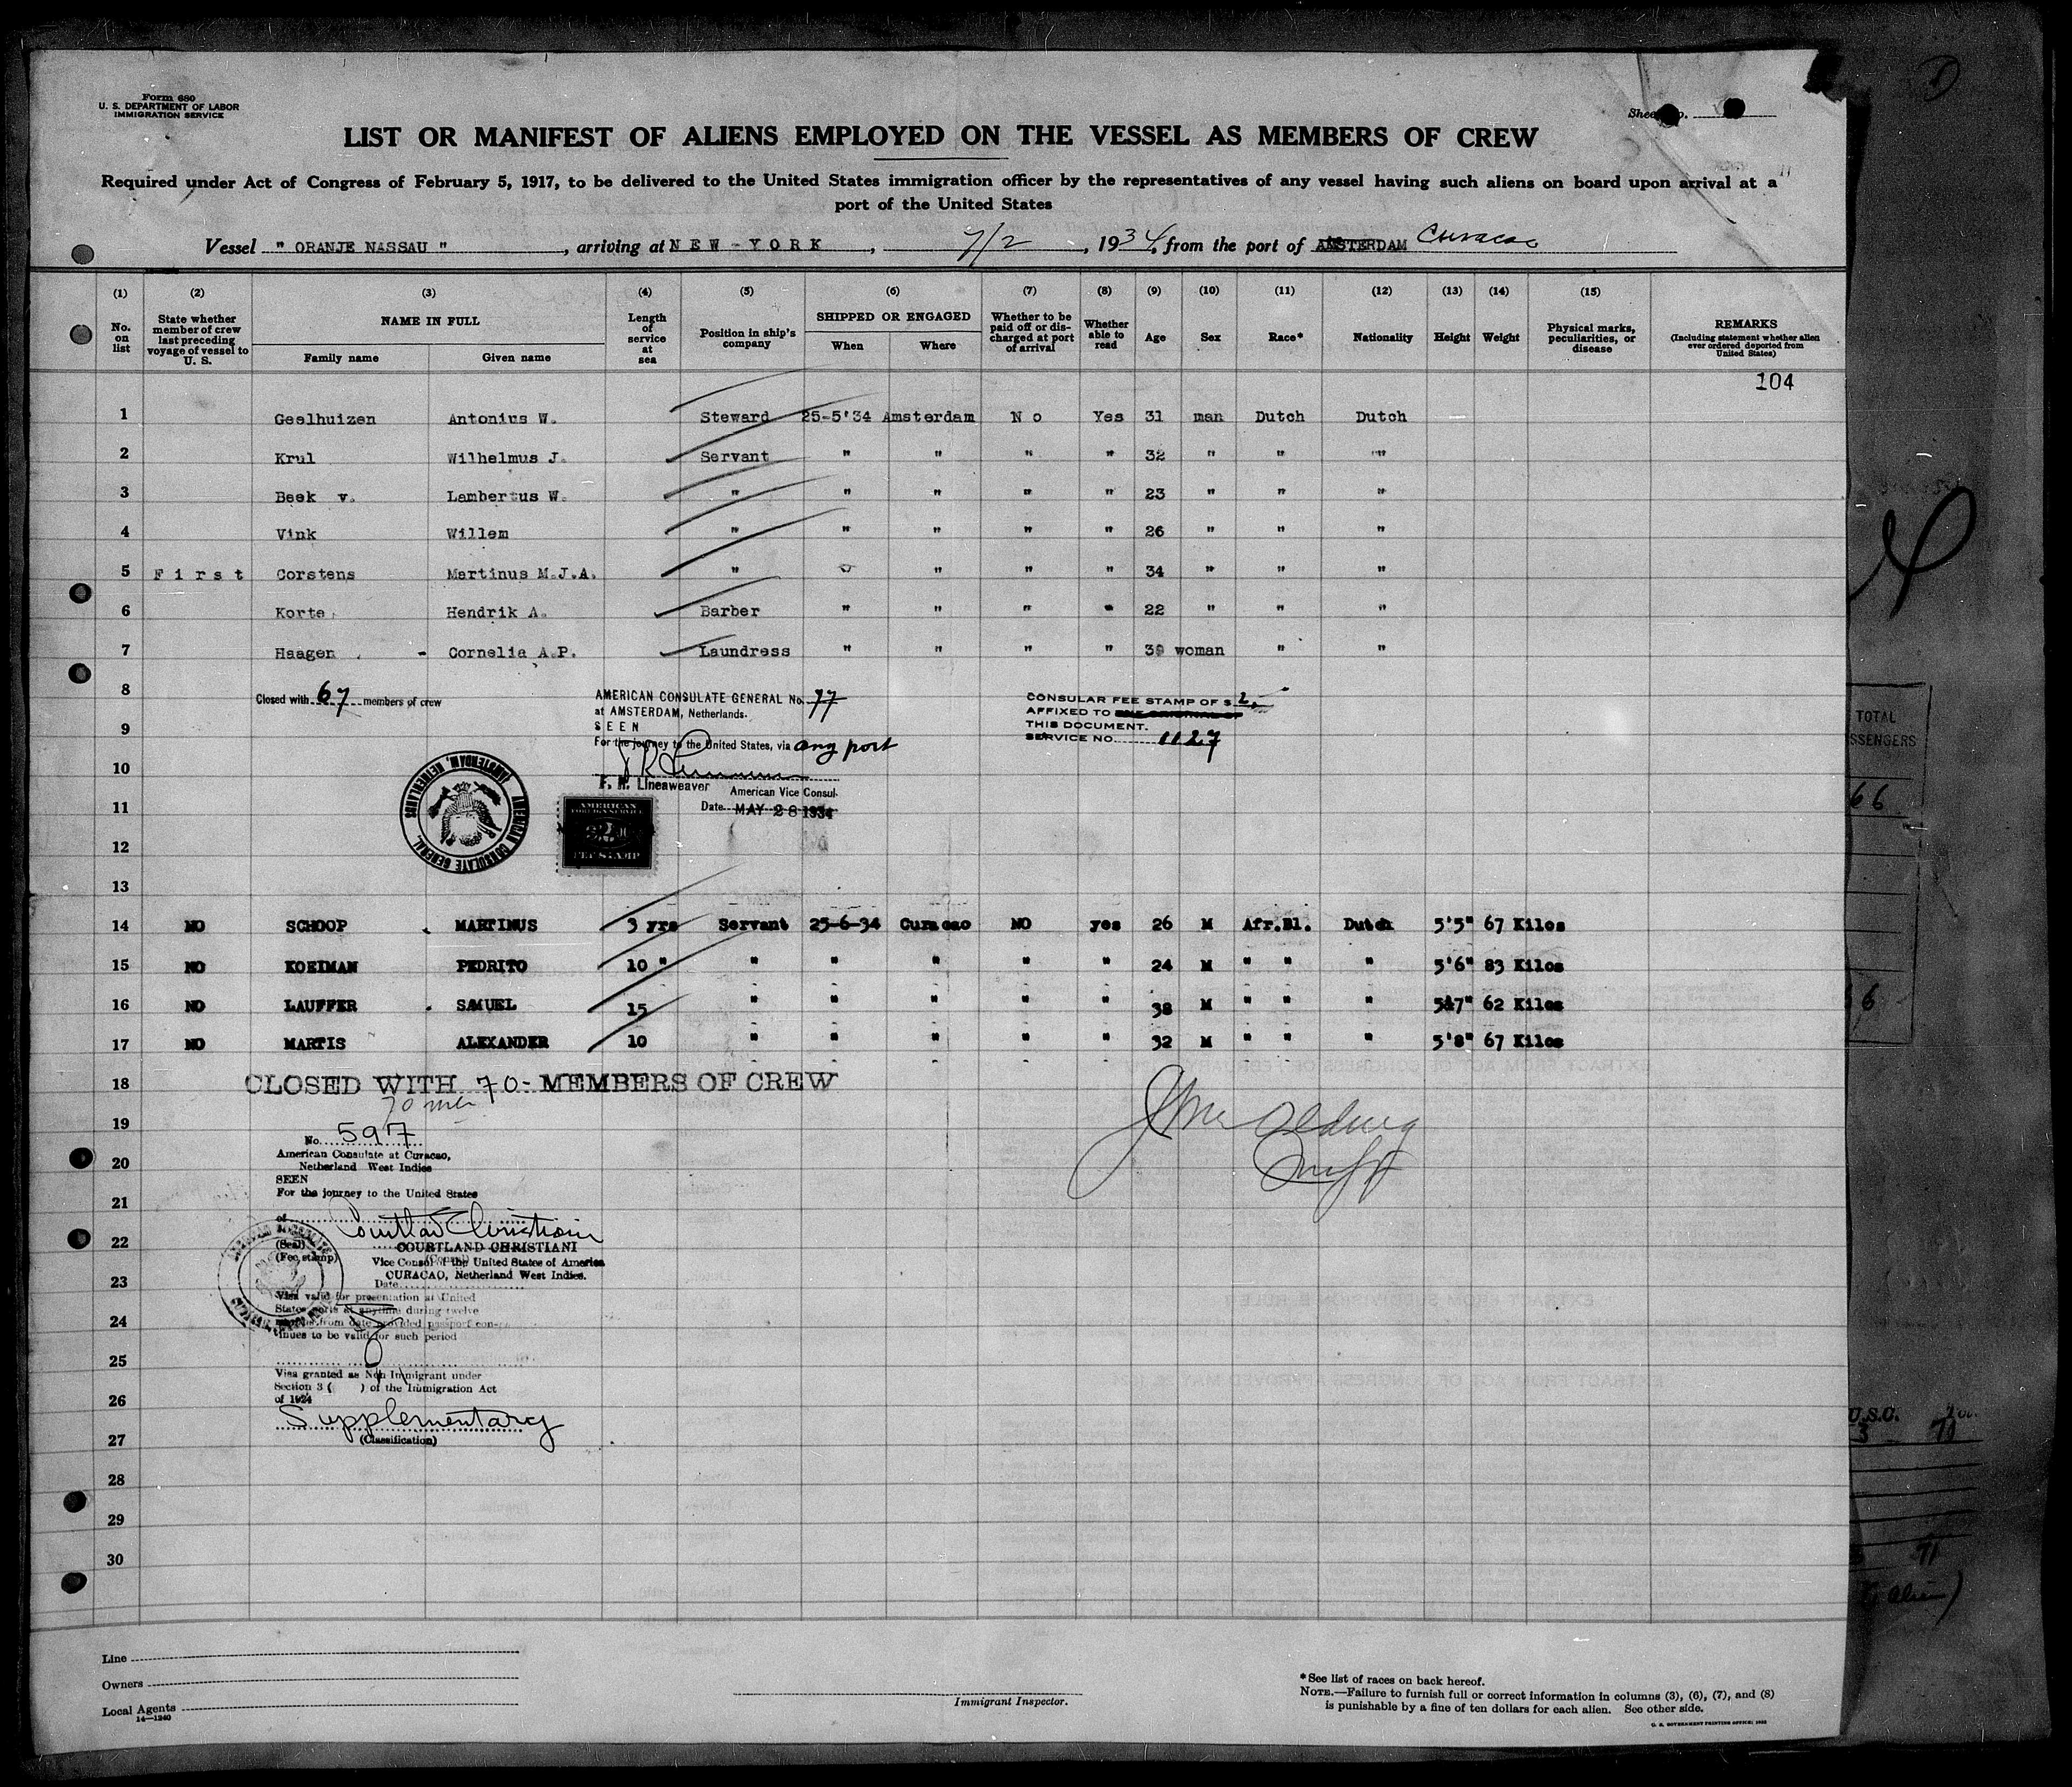 Form 680
U. S. DEPARTMENT OF LABOR
IMMIGRATION SERVICE
Sheet No.
LIST OR MANIFEST OF ALIENS EMPLOYED ON THE VESSEL AS MEMBERS OF CREW
Required under Act of Congress of February 5, 1917, to be delivered to the United States immigration officer by the representatives of any vessel having such aliens on board upon arrival at a
port of the United States
Vessel " ORANJE NASSAU ", arriving at NEW-YORK, 7/2, 1934, from the port of AMSTERDAM Curacao
(1) (2) (3) (4) (5) (6) (7) (8) (9) (10) (11) (12) (13) (14) (15)
No. on list
State whether member of crew last preceding voyage of vessel to U. S.
NAME IN FULL
Family name Given name
Length of service at sea
Position in ship's company
SHIPPED OR ENGAGED
When Where
Whether to be paid off or discharged at port of arrival
Whether able to read
Age Sex Race* Nationality Height Weight
Physical marks, peculiarities, or disease
REMARKS
(Including statement whether alien ever ordered deported from United States)
104
1 Geelhuizen Antonius W. Steward 25-5'34 Amsterdam No Yes 31 man Dutch Dutch
2 Krul Wilhelmus J. Servant " " " " 32 " " "
3 Beek v. Lambertus W. " " " " " 23 " " "
4 Vink Willem " " " " " 26 " " "
5 First Corstens Martinus M.J.A. " " " " " 34 " " "
6 Korte Hendrik A. Barber " " " " 22 " " "
7 Haagen - Cornelia A.P. Laundress " " " " 39 woman " "
8 Closed with 67 members of crew
AMERICAN CONSULATE GENERAL No. 77
at AMSTERDAM, Netherlands.
SEEN
For the journey to the United States, via any port
F. R. Lineaweaver American Vice Consul
Date MAY 28 1934
CONSULAR FEE STAMP OF $ 2.
AFFIXED TO
THIS DOCUMENT.
SERVICE NO. 1127
AMERICAN CONSULATE GENERAL, AMSTERDAM, NETHERLANDS.
AMERICAN
FOREIGN SERVICE
$2
FEE STAMP
9
10
11
12
13
14 NO SCHOOP MARTINUS 3 yrs Servant 25-6-34 Curacao NO yes 26 M Afr.Bl. Dutch 5'5" 67 Kilos
15 NO KOEIMAN PEDRITO 10 " " " " " " 24 M " " " 5'6" 83 Kilos
16 NO LAUFFER SAMUEL 15 " " " " " 38 M " " " 5'7" 62 Kilos
17 NO MARTIS ALEXANDER 10 " " " " " 32 M " " " 5'8" 67 Kilos
18 CLOSED WITH 70- MEMBERS OF CREW
70 men
19
No. 597
American Consulate at Curacao,
Netherland West Indies
20
SEEN
For the journey to the United States
21
of
Courtland Christiani
22
(Seal)
COURTLAND CHRISTIANI
(Fee stamp)
(Consul)
Vice Consul of the United States of America
CURACAO, Netherland West Indies.
23
Date
Visa valid for presentation at United
States ports at anytime during twelve
months from date provided passport con-
tinues to be valid for such period
24
25
Visa granted as Non Immigrant under
Section 3 ( ) of the Immigration Act
of 1924
26
Supplementary
(Classification)
27
28
29
30
Line
Owners
Local Agents
14—1240
Immigrant Inspector.
*See list of races on back hereof.
NOTE.—Failure to furnish full or correct information in columns (3), (6), (7), and (8)
is punishable by a fine of ten dollars for each alien. See other side.
U. S. GOVERNMENT PRINTING OFFICE
TOTAL
SSENGERS
66
6
U.S.C.
3 70
71
alien)